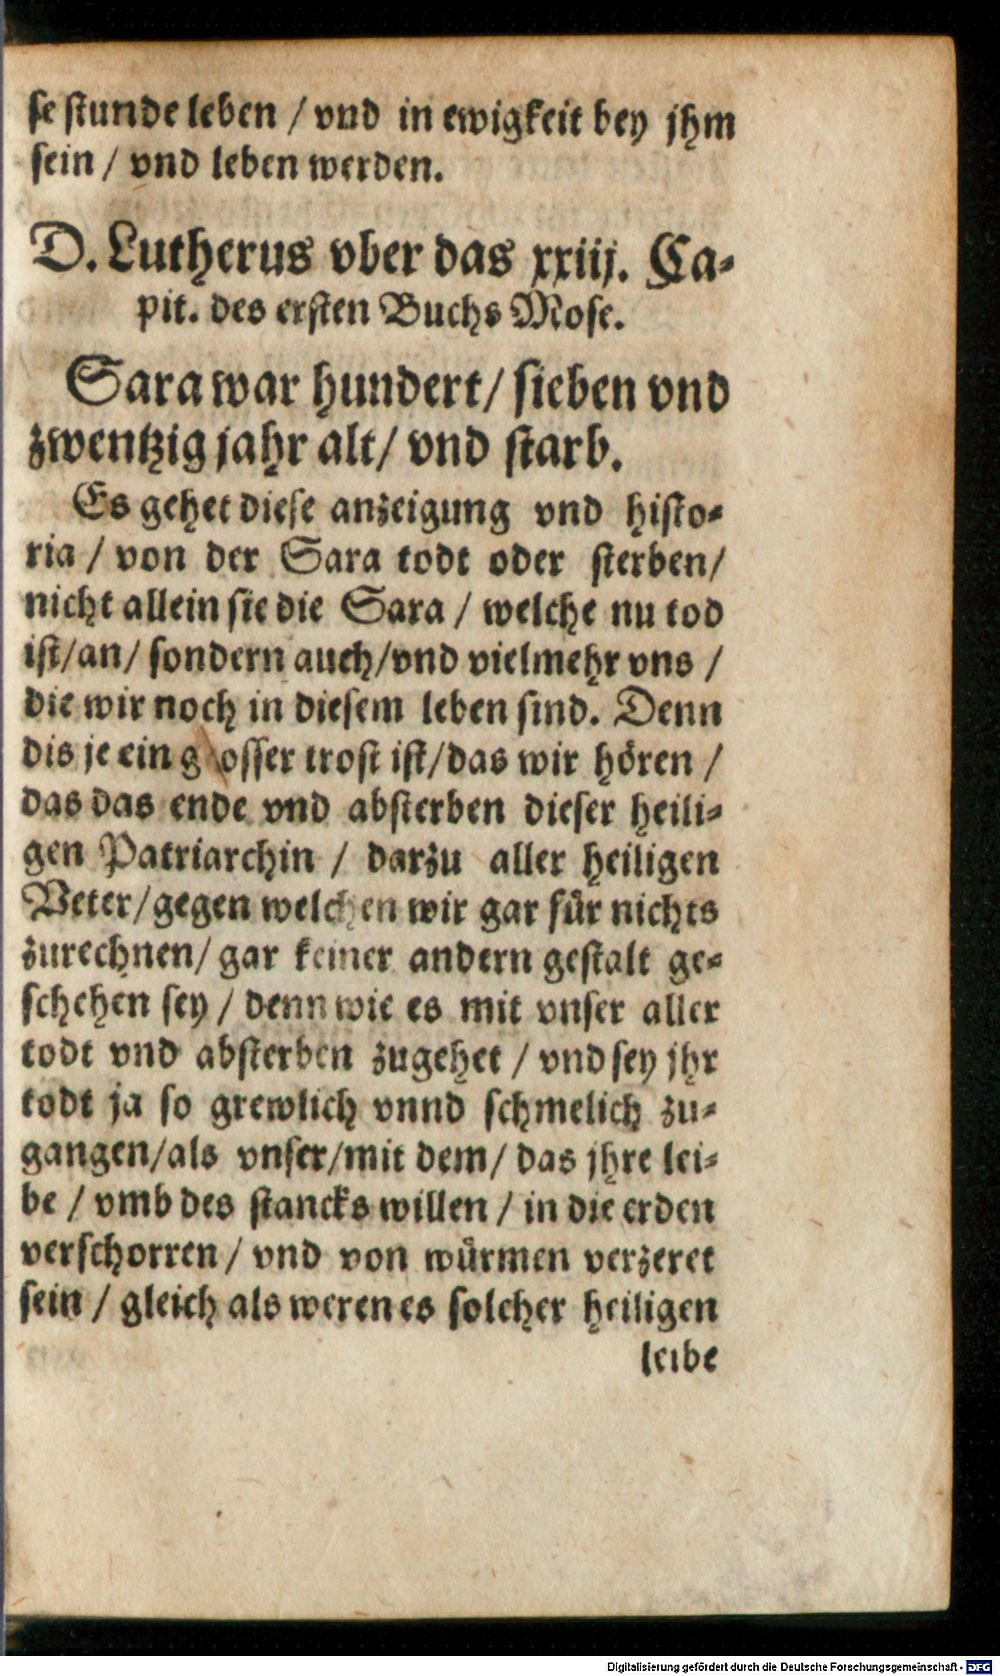 se stunde leben / vnd in ewigkeit bey jhm
sein / vnd leben werden.
D. Lutherus vber das xxiij. Ca-
pit. des ersten Buchs Mose.
Sara war hundert / sieben vnd
zwentzig jahr alt / vnd starb.
Es gehet diese anzeigung vnd histo-
ria / von der Sara todt oder sterben /
nicht allein sie die Sara / welche nu tod
ist / an / sondern auch / vnd vielmehr vns /
die wir noch in diesem leben sind. Denn
dis je ein grosser trost ist / das wir hören /
das das ende vnd absterben dieser heili-
gen Patriarchin / darzu aller heiligen
Veter / gegen welchen wir gar für nichts
zurechnen / gar keiner andern gestalt ge-
schehen sey / denn wie es mit vnser aller
todt vnd absterben zugehet / vnd sey jhr
todt ja so grewlich vnnd schmelich zu-
gangen / als vnser / mit dem / das jhre lei-
be / vmb des stancks willen / in die erden
verschorren / vnd von würmen verzeret
sein / gleich als weren es solcher heiligen
leibe
Digitalisierung gefördert durch die Deutsche Forschungsgemeinschaft - DFG